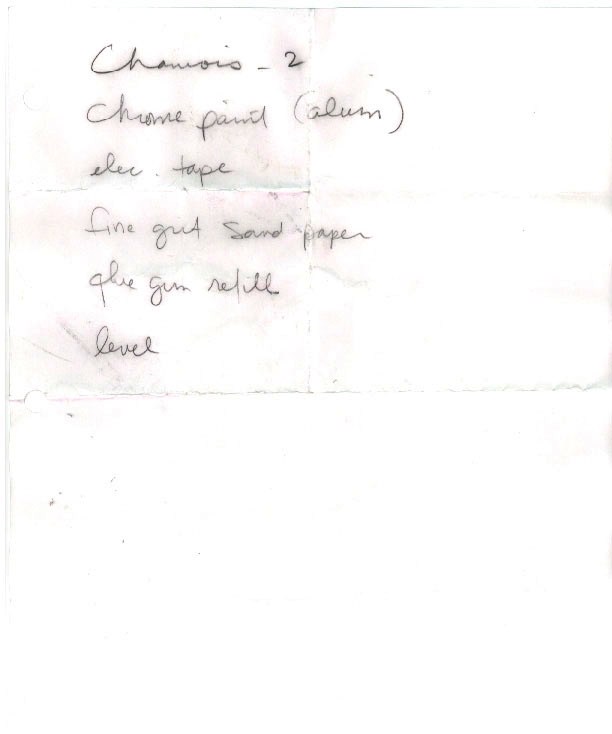 Chamois - 2
Chrome paint (alum)
elec. tape
fine grit sand paper
glue gun refill
level